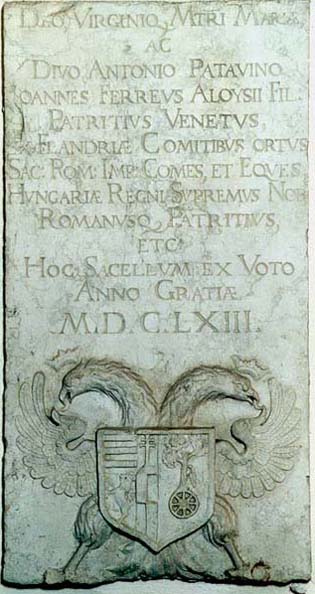 DEO, VIRGINIQ. MTRI MARIÆ,
AC
DIVO ANTONIO PATAVINO
IOANNES FERREVS ALOYSII FIL:
PATRITIUS VENETUS,
FLANDRIÆ COMITIBUS ORTUS
SAC: ROM: IMP: COMES, ET EQUES
HUNGARIÆ REGNI SUPREMUS NOB:
ROMANUSQ. PATRITIUS,
ETC.
HOC SACELLUM EX VOTO
ANNO GRATIÆ
M.D.C.LXIII.